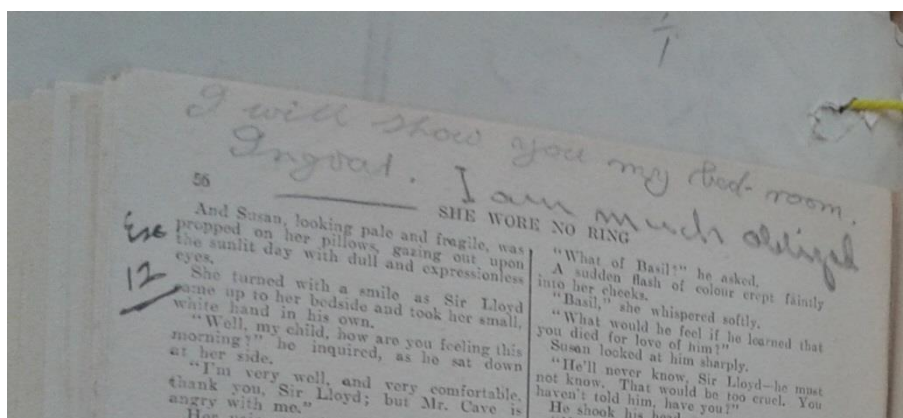 I will show you my bed-room.
Ingvat. I am much obliged
56
SHE WORE NO RING
Exe
12
And Susan, looking pale and fragile, was
propped on her pillows, gazing out upon
the sunlit day with dull and expressionless
eyes.
She turned with a smile as Sir Lloyd
came up to her bedside and took her small,
white hand in his own.
"Well, my child, how are you feeling this
morning?" he inquired, as he sat down
at her side.
"I'm very well, and very comfortable,
thank you, Sir Lloyd; but Mr. Cave is
angry with me."
"What of Basil?" he asked.
A sudden flash of colour crept faintly
into her cheeks.
"Basil," she whispered softly.
"What would he feel if he learned that
you died for love of him?"
Susan looked at him sharply.
"He'll never know, Sir Lloyd—he must
not know. That would be too cruel. You
haven't told him, have you?"
He shook his head.